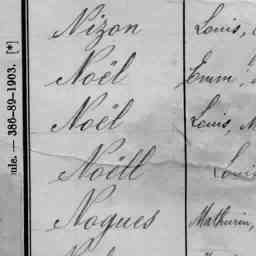 Nizon Louis,
Noël Emm
Noël Louis, M
Noëll Louis
Nogues Mathurin,
ule. — 386-89-1903. [*]